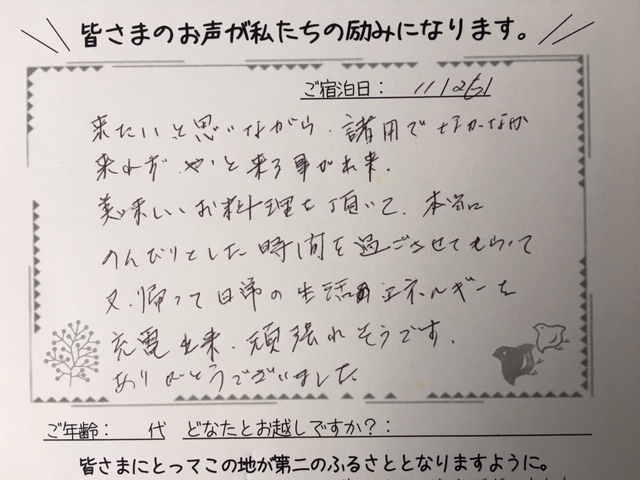 皆さまのお声が私たちの励みになります。
ご宿泊日:
来たいと思いながら、諸用でなかなか
来れず やっと来る事が出来、
美味しいお料理を頂いて、本当に
のんびりとした時間を過ごさせてもらって
又、帰って日常の生活のエネルギーを
充電出来、頑張れそうです。
ありがとうございました
ご年齢: 代 どなたとお越しですか?:
皆さまにとってこの地が第二のふるさととなりますように。